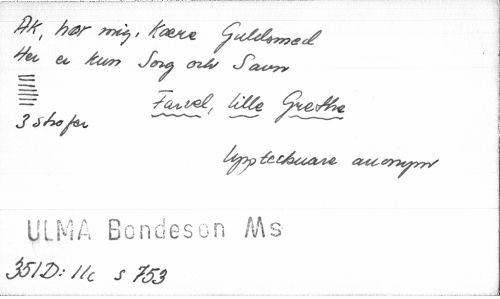 Ak, hør mig, Kære Guldsmed
Her er kun Sorg och Savn
Farvel, lille Grethe
3 strofer
Upptecknare anonym
ULMA Bondeson Ms
351D: 11c s 753